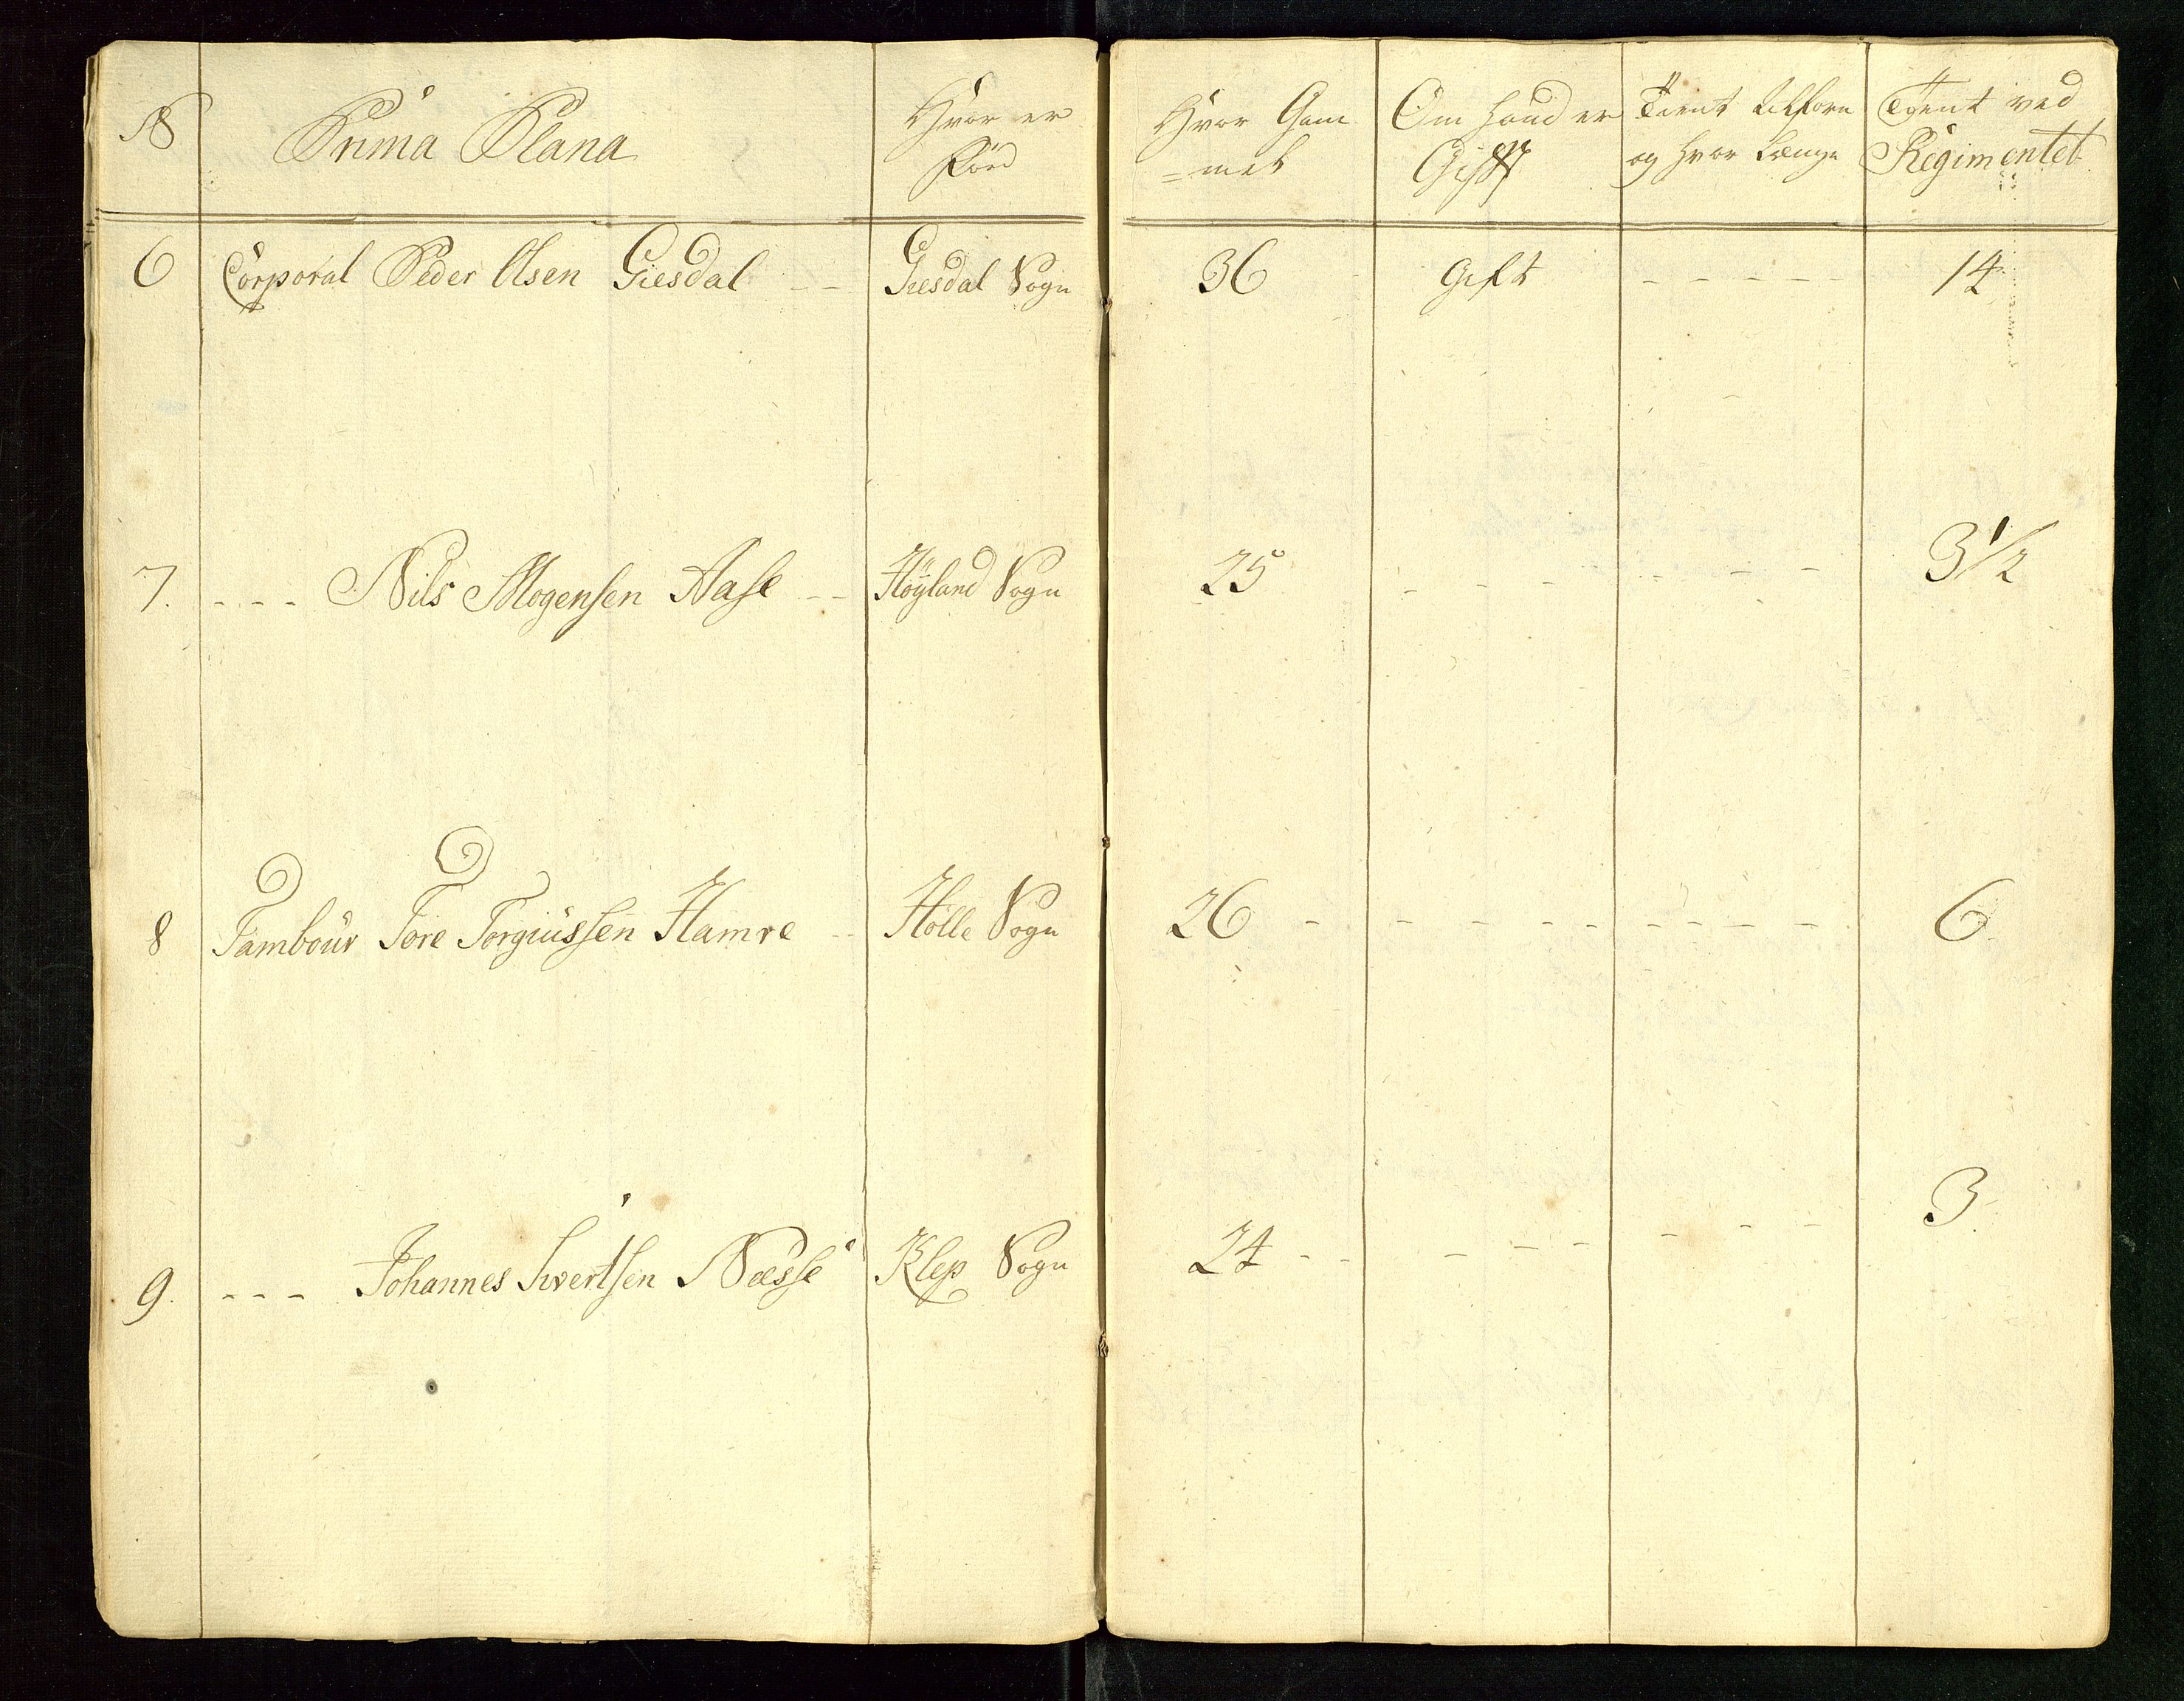 N
Prima Plana
Hvor er
Föed
Hvor Gam
=mel
Om hand er
Gifft
Tient tilforn
og hvor Længe
Tient ved
Regimentet
6 Corporal Peder Olsen Giesdal - - Giesdal Sogn 36 Gift - - - - - 14
7. - - - Nils Mogensen Aase - - Höyland Sogn 25 - - - - - - 3 1/2
8 Tambour Tore Torgiussen Hamre - - Hölle Sogn 26 - - - - - - - - - 6
9. - - - Johannes Sivertsen Næsse Klep Sogn 24 - - - - - - - - 3